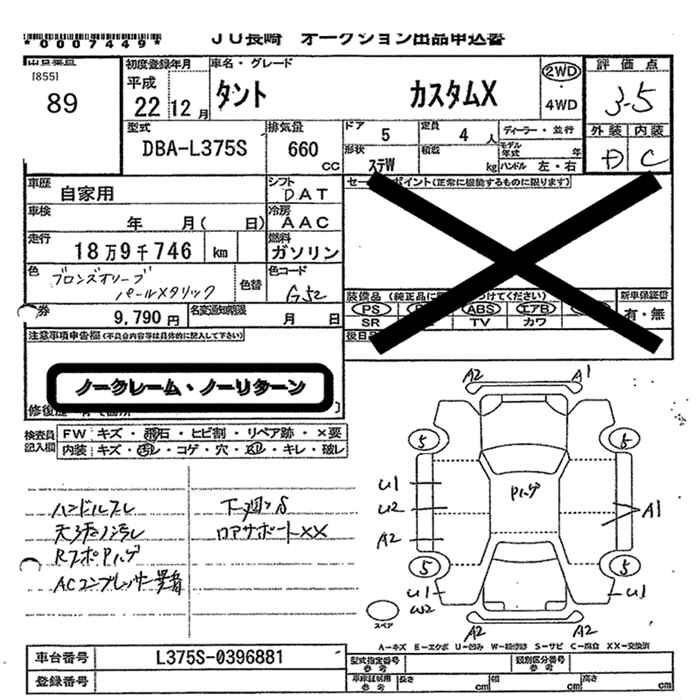 *0007449*
JU長崎 オークション出品申込書
[855]
89
初度登録年月
平成
22 12 月
車名・グレード
タント カスタムX
2WD
・4WD
評価点
3-5
外装 内装
D C
型式
DBA-L375S
排気量
660
CC
ドア 5
定員 4 人
ディーラー・並行
形状 ステW
積載 kg
モデル年式 年
ハンドル 左・右
車歴
自家用
シフト
DAT
車検
年 月( 日)
冷房
AAC
走行
18万9千746 km
燃料
ガソリン
色
ブロンズオリーブ
パールメタリック
色替
色コード
G52
券
9,790 円
名変通知期限
月 日
ポイント(正常に機能するものに限ります)
装備品
PS
ABS
エアB
SR
TV
カワ
新車保証書
有・無
注意事項申告欄(不具合内容等は具体的に記入して下さい)
ノークレーム・ノーリターン
検査員記入欄
FW キズ・飛石・ヒビ割・リペア跡・×要
内装 キズ・汚レ・コゲ・穴・・キレ・破レ
ハンドルスレ
天汚レ
RスポPハゲ
ACコンプレッサー異音
下廻りS
ロアサポートXX
A2 A1
5 5
U1
U2
A2
Pハゲ
A1
5 5
U1
W2
U1
A2 A2
スペア
A-キズ E-エクボ U-凹み W-補修跡 S-サビ C-腐食 XX-交換済
車台番号 L375S-0396881
登録番号
型式指定番号 参考
類別区分番号 参考
車庫証明用 参考
長さ cm
幅 cm
高さ cm